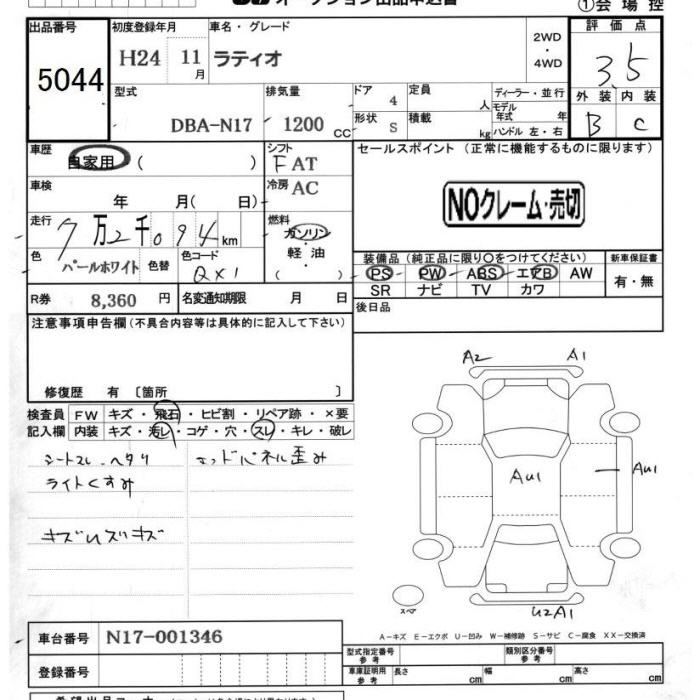 オークション出品申込書
①会場控
出品番号 初度登録年月 車名・グレード 評価点
5044 H24 11月 ラティオ 2WD・4WD 3.5
型式 排気量 ドア 4 定員 人 ディーラー・並行 外装 内装
モデル年式 年
DBA-N17 1200cc 形状 S 積載 kg ハンドル 左・右 B C
車歴 自家用 ( ) シフト FAT セールスポイント (正常に機能するものに限ります)
車検 年 月( 日) 冷房 AC NOクレーム・売切
走行 7万2千094km 燃料 ガソリン
色 パールホワイト 色替 色コード QX1 軽油 ( )
装備品(純正品に限り〇をつけてください) 新車保証書
PS PW ABS エアB AW 有・無
SR ナビ TV カワ
R券 8,360円 名変通知期限 月 日 後日品
注意事項申告欄(不具合内容等は具体的に記入して下さい)
修復歴 有 〔箇所 〕
検査員 FW キズ・飛石・ヒビ割・リペア跡・×要
記入欄 内装 キズ・汚レ・コゲ・穴・スレ・キレ・破レ
シートスレ、ヘタリ エンドパネル歪み
ライトくすみ
キズUズキズ
A2 A1
AU1 AU1
スペア U2A1
A-キズ E-エクボ U-凹み W-補修跡 S-サビ C-腐食 XX-交換済
車台番号 N17-001346
型式指定番号 参考 類別区分番号 参考
登録番号 車庫証明用 参考 長さ cm 幅 cm 高さ cm